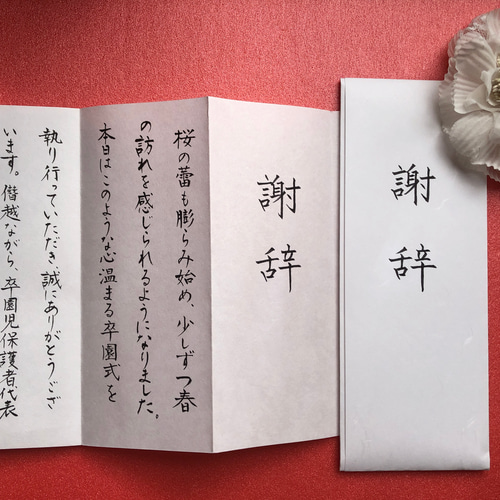 謝辞
謝辞
桜の蕾も膨らみ始め、少しずつ春
の訪れを感じられるようになりました。
本日はこのような心温まる卒園式を
執り行っていただき誠にありがとうござ
います。僭越ながら、卒園児保護者代表